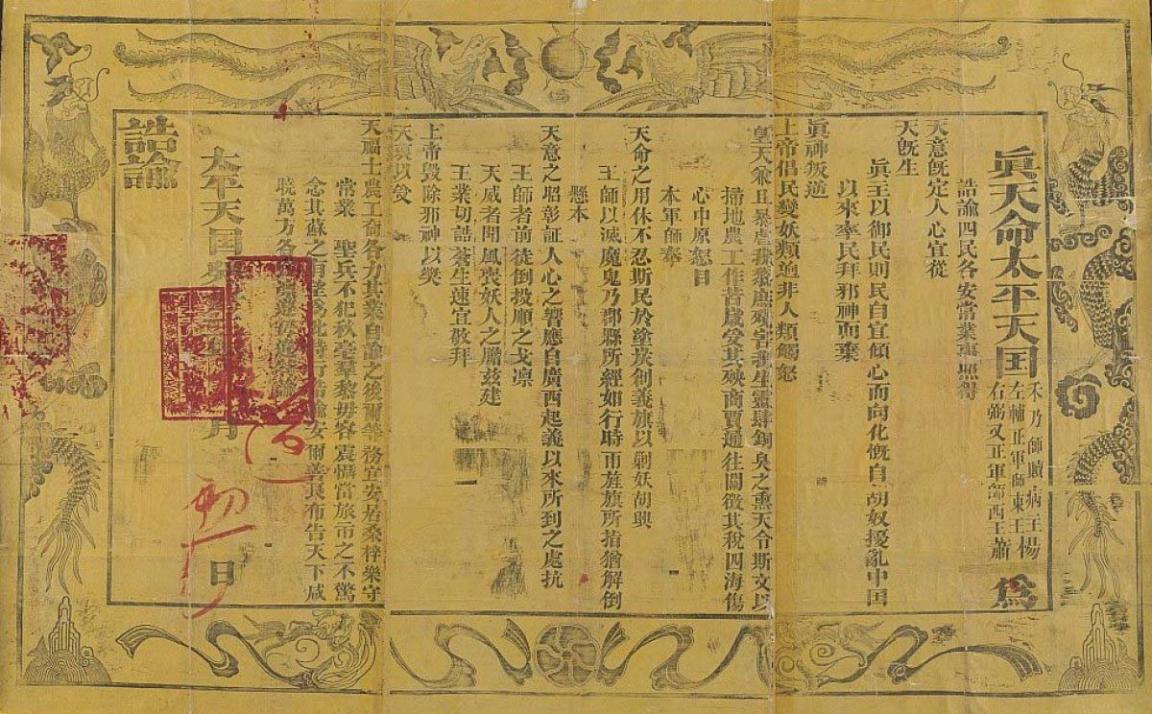 眞天命太平天国
禾乃師贖病主
左輔正軍師東王楊
右弼又正軍師西王蕭
為
誥諭四民各安常業事照得
天意既定人心宜從
天既生
眞主以御民則民自宜傾心而向化慨自胡奴擾亂中国
以來率民拜邪神而棄
眞神叛逆
上帝倡民變妖類迥非人類觸怒
皇天兼且暴虐我黎庶殘害我生靈肆銅臭之熏天令斯文以
掃地農工作苦歲受其殃商賈通往關徵其稅四海傷
心中原怒目
本軍師奉
天命之用休不忍斯民於塗炭創義旗以剿妖胡興
王師以滅魔鬼乃郡縣所經如行時雨旌旗所指猶解倒
懸本
天意之昭彰証人心之響應自廣西起義以來所到之處抗
王師者前徒倒拔順之戈凛
天威者聞風喪妖人之膽茲建
王業切誥蒼生速宜敬拜
上帝毀除邪神以奬
天衷以
天
士農工商各力其業自諭之後爾等務宜安居桑梓樂守
常業 聖兵不犯秋毫羣黎毋容震慴當旅市之不驚
念其蘇之
安爾善良布告天下咸
曉萬方各
太平天国
月
初一
日
誥諭